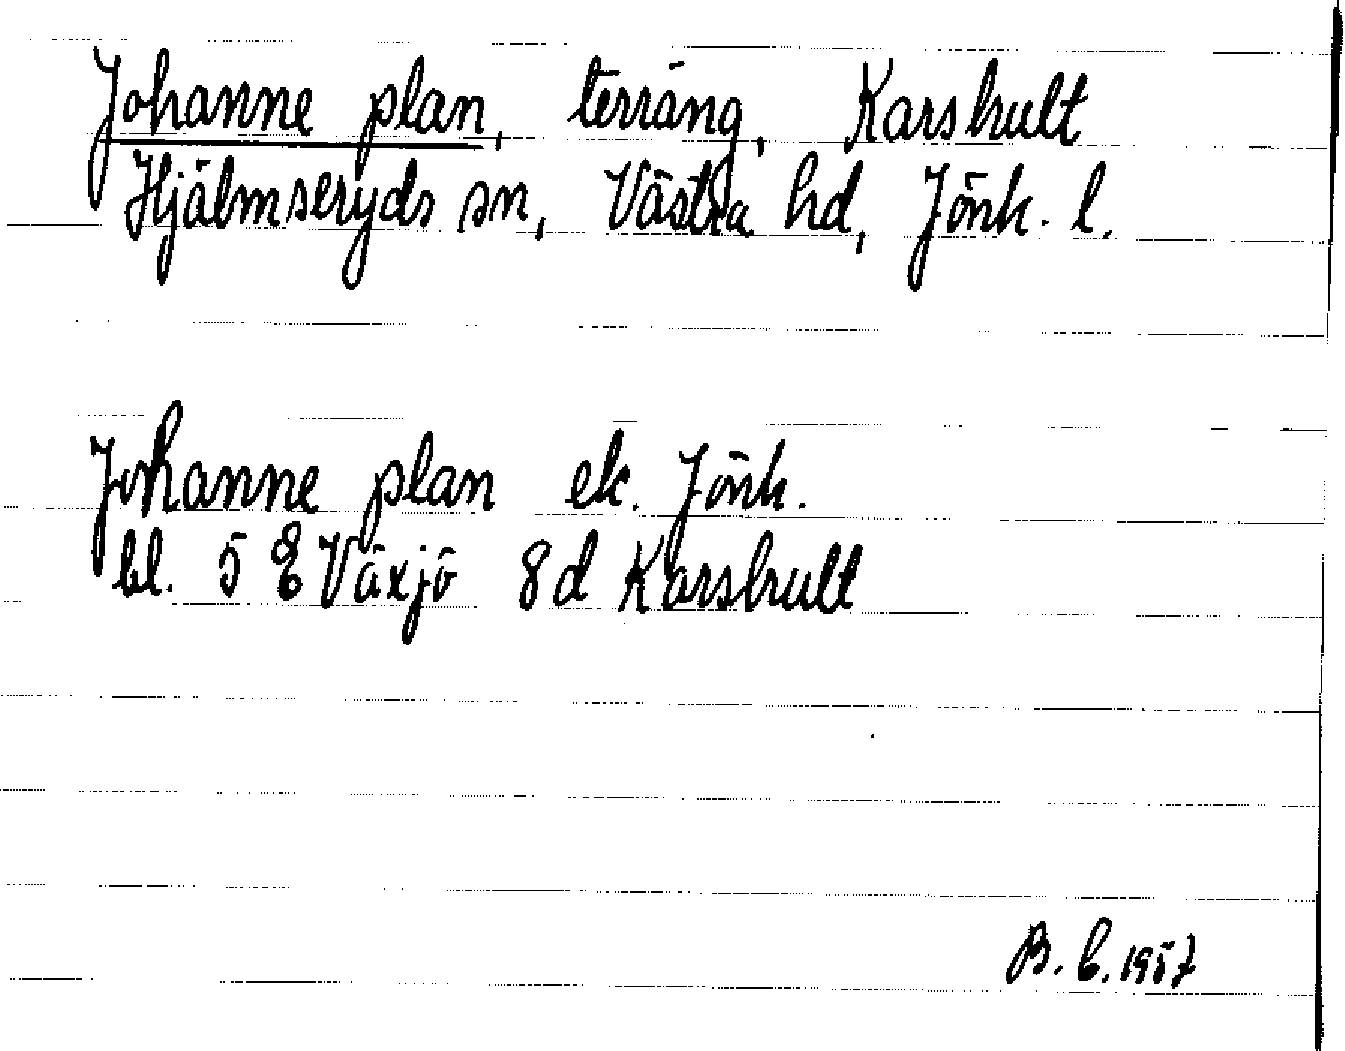 Johanne plan, terräng, Karshult
Hjälmseryds sn, Västra hd, Jönk. l.
Johanne plan ek. Jönk.
bl. 5 E Växjö 8d Karshult
B. C. 1957